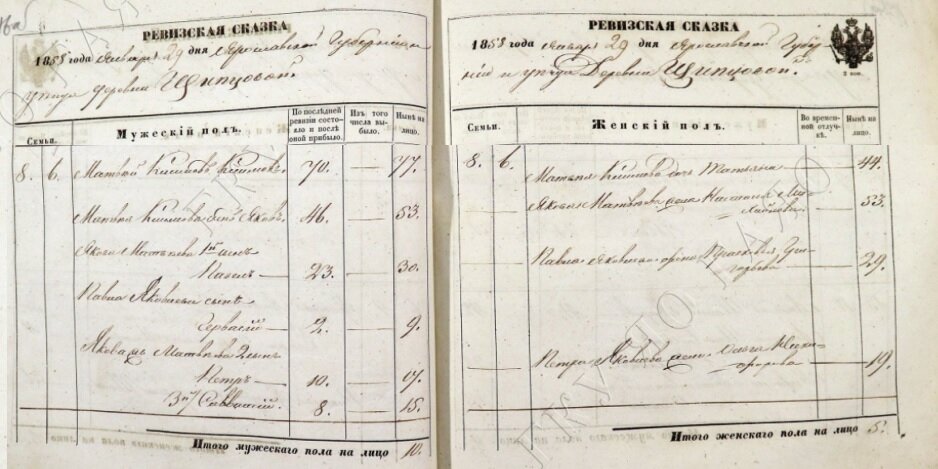 РЕВИЗСКАЯ СКАЗКА
1858 года Января 29 дня Ярославской Губернии
уезда деревни Щипцовой.
Семьи.
Мужескій полъ.
По последней ревизіи состояло и после оной прибыло.
Изъ того числа выбыло.
Ныне на лицо.
8. 6. Матвей 70. — 77.
Матвея сынъ Яковъ. 46. — 53.
Якова Матвеева 1й сынъ
Павелъ — 23. — 30.
Павла Яковлева сынъ
Гервасій — 2. — 9.
Якова Матвеева 2 сынъ
Петръ — 10. — 17.
3й Савватій. 8. — 15.
Итого мужескаго пола на лицо 10.
РЕВИЗСКАЯ СКАЗКА
1858 года Января 29 дня Ярославской Губер
ніи и уезда Деревни Щипцовой.
2 коп.
Семьи.
Женскій полъ.
Во временной отлучке.
Ныне на лицо.
8. 6. Матвея дочь Татьяна — 44.
Якова Матвеева жена Наталья Ми
хайлова — 53.
Павла Яковлева жена Прасковья Гри
горьева — 29.
Петра Яковлева жена Ольга Ники
форова — 19.
Итого женскаго пола на лицо 5.